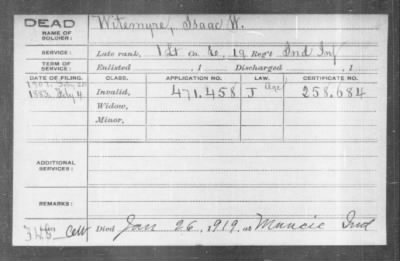 DEAD
NAME OF SOLDIER: Witemyre, Isaac W.
SERVICE: Late rank, 1 Lt Co. 19 Reg't Ind Inf
TERM OF SERVICE: Enlisted , 1 Discharged , 1
DATE OF FILING. CLASS. APPLICATION NO. LAW. CERTIFICATE NO.
1907. Feby Age
1883. July 4 Invalid, 471.458 J 258.684
Widow,
Minor,
ADDITIONAL SERVICES:
REMARKS:
Died Jan 26, 1919, at Muncie Ind